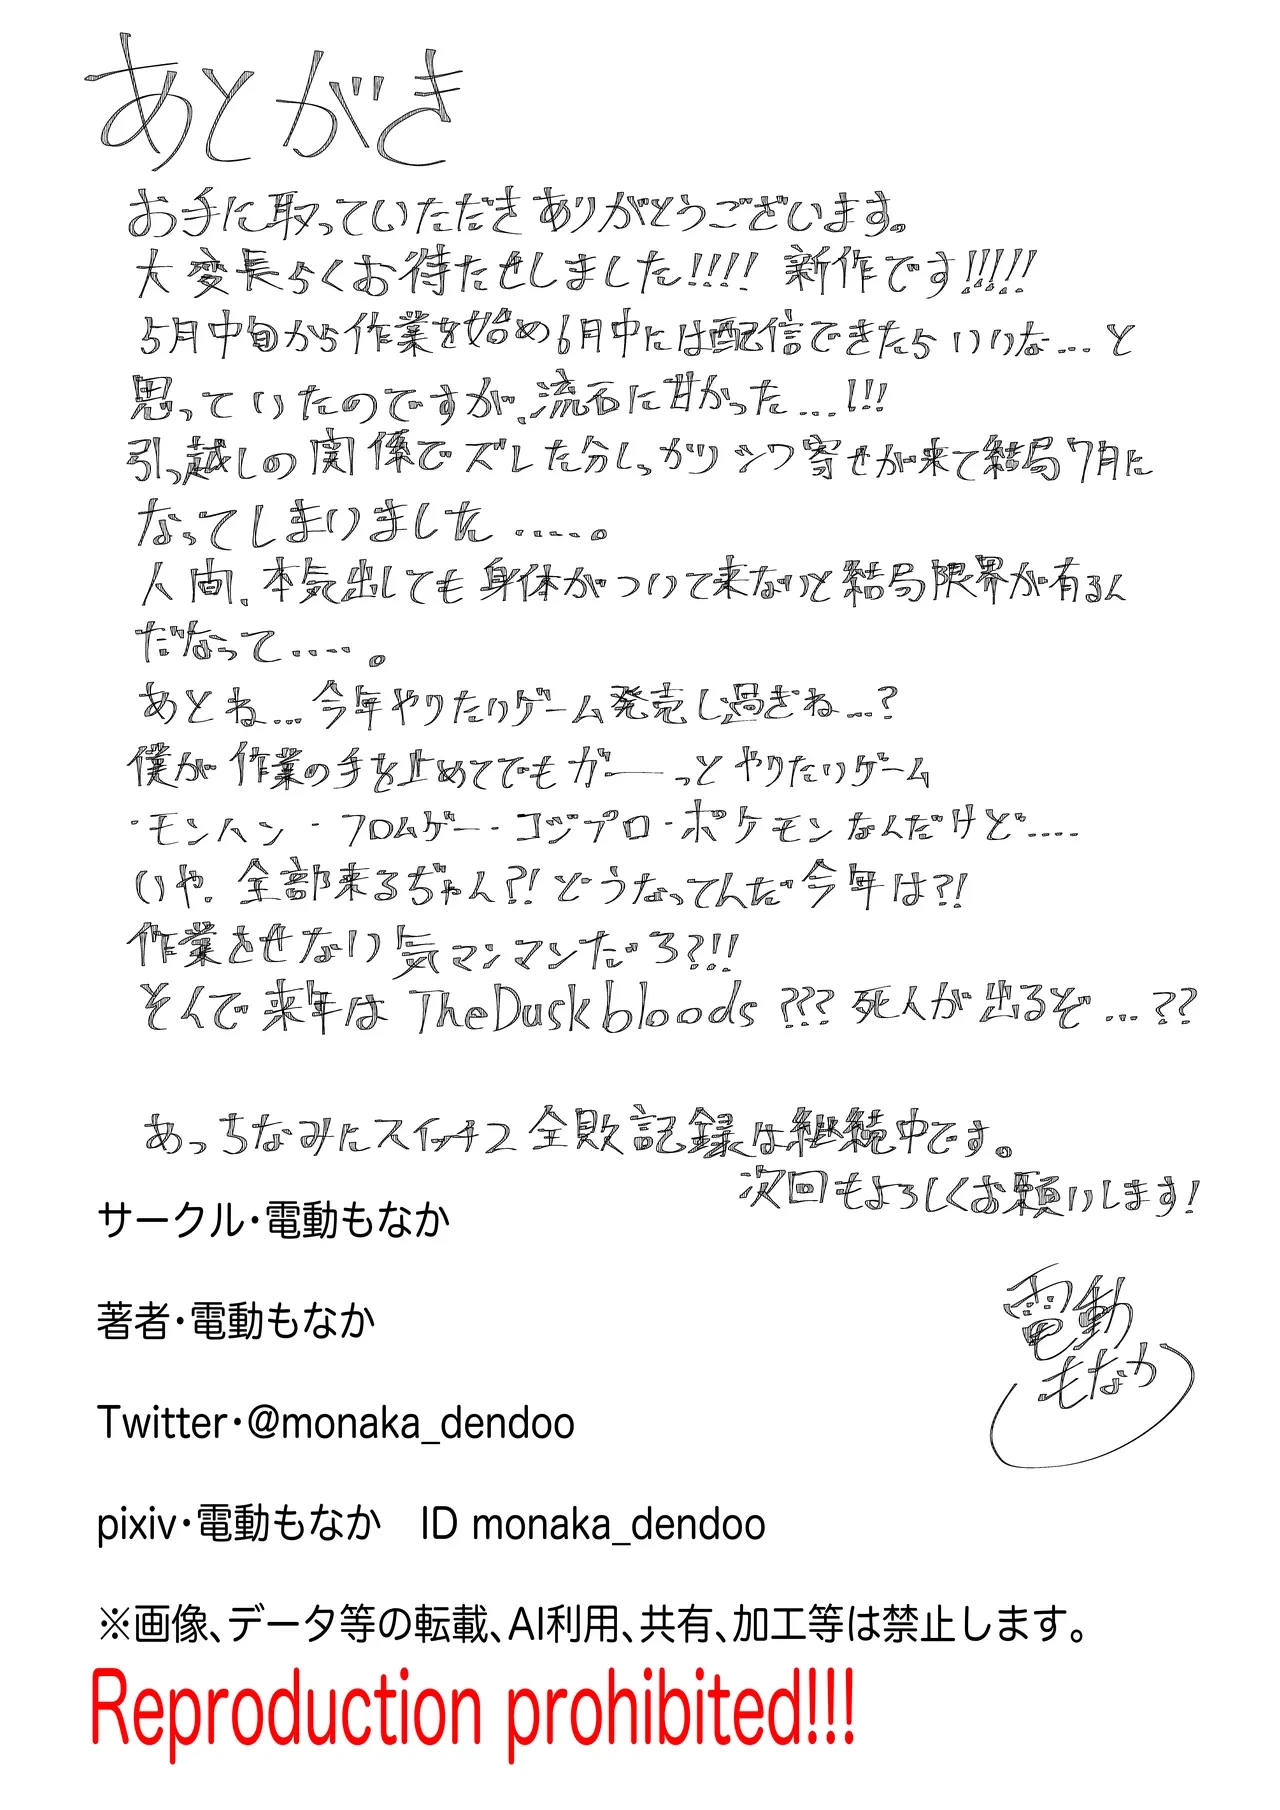 あとがき
お手に取っていただきありがとうございます。
大変長らくお待たせしました!!!! 新作です!!!!!
5月中旬から作業を始め6月中には配信できたらいいな...と
思っていたのですが、流石に甘かった...!!!
引っ越しの関係でズレた分しっかりシワ寄せが来て結局7月に
なってしまいました.....。
人間、本気出しても身体がついて来ないと結局限界が有るん
だなって....。
あとね...今年やりたいゲーム発売し過ぎね...?
僕が作業の手を止めてでもガーーっとやりたいゲーム
・モンハン・フロムゲー・コジプロ・ポケモンなんだけど....
いや、全部来るぢゃん?!どうなってんだ今年は?!
作業させない気マンマンだろ?!!
そんで来年はTheDuskbloods???死人が出るぞ...??
あっちなみにスイッチ2全敗記録は継続中です。
次回もよろしくお願いします!
サークル・電動もなか
著者・電動もなか
電動
もなか
Twitter・@monaka_dendoo
pixiv・電動もなか ID monaka_dendoo
※画像、データ等の転載、AI利用、共有、加工等は禁止します。
Reproduction prohibited!!!